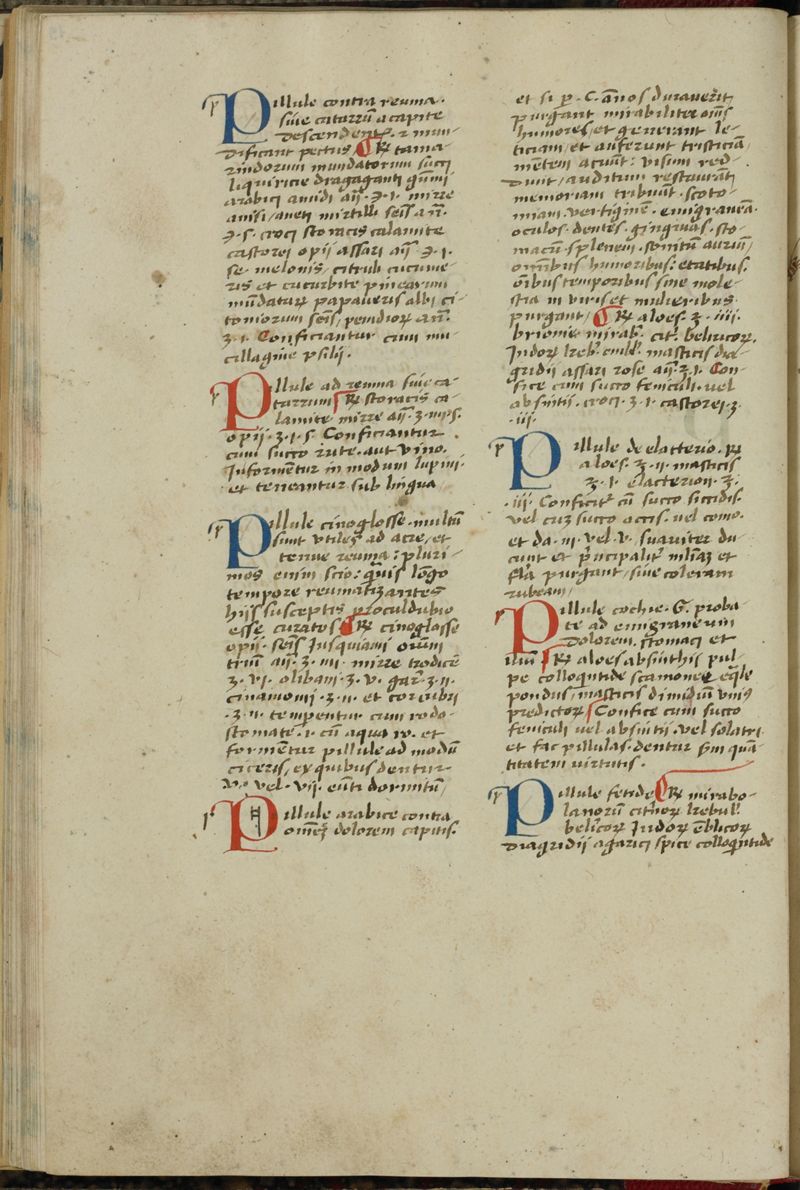 Pillule contra reuma.
siue catarrũ a capite
descendentẽ. ⁊ mun-
dificant pectus, ℞ tama-
rindorum mundatorum succi
liquiricie dragaganti gũmi
arabici amidi añ. ℈.i. mirre
anisi, aneti mirtilli seĩs añ.
℈.s. croci storacis calamite
castorei opii assari añ. ℈.i.
se. melonis, citruli cucume-
ris et cucurbite pinearum
mũdatarꝝ papaueris albi ci-
toniorum seĩs,
ʒ.i. Conficiantur cum mu-
cillagine psilij.
Pillule ad reuma siue ca-
tarrum ℞ storacis ca-
lamite mirre añ. ʒ.
opij. ʒ.i.s. Conficiantur.
cum succo rute. aut vino.
Informẽtur in modum lupini.
et teneantur sub lingua
Pillule cinoglosse. multũ
sunt vtiles ad acre, et
tenue reuma: pluri-
mos enim scio: quis lõgo
tempore reumatizantes
hijs susceptis procul dubio
esse curatos ℞ cinoglosse
opij. seĩs Jusquiami
añ. ʒ.iiij. mirre trocisce
ʒ.vi. olibani. ʒ.v. gar. ʒ.ij.
cinamomi. ʒ.ii. et
.ʒ.ii. temperentur cum rodo-
stomate.i. cũ aqua ro. et
formẽtur pillule ad modũ
ciceris, ex quibus dentur
v. vel. vij. eũti dormitũ,
Pillule arabice contra
omẽꝫ dolorem capitis.
et si p. C. ãnos durauerit,
purgant mirabiliter oms̃
humores, et generant le-
ticiam, et auferunt tristiciã,
mẽtem acuũt: visum red-
dunt, auditum restaurãt,
memoriam tribuũt. scoto-
miam. vertiginẽ. emigraneã.
oculos. dentes. gingiuas. sto-
macũ. splenem. sonitũ aurium,
omibus humoribus: etatibus.
oĩbus temporibus sine mole-
stia in viris et mulieribus.
purgant, ℞ aloes. ʒ.iiij.
brionie mirab. cit. belliricorꝝ.
Jndorꝝ kebl. embl. masticis dia-
gridij assari rose añ. ʒ.i. Con-
fice cum succo feniculi. uel
absintii. croci. ʒ.i. castorei. ʒ
.iij.
Pillule de elatterio. ℞
aloes. ʒ.ij. masticis
ʒ.i. elacterion. ʒ.
.iij. Conficit cũ succo
vel cuꝫ succo
et da. iij. vel. v. suauiter du-
cunt et principalit̃ et
fla purgant, siue coleram
rubeam,
Pillule cochie. G. proba-
te ad emigraneum
dolorem. stomaci et
℞ aloes absinthij pul-
pe colloquintide scamonee eqle
pondus, masticis dimidiũ vniꝰ
predictorꝝ Confice cum succo
feniculi uel absintii. vel solatri
et fac pillulas. dentur scm quã-
titatem virtutis.
Pillule fetide ℞ mirabo-
lanorũ citrinorꝝ kebul.
belliricorꝝ Jndorꝝ ẽblicorꝝ
diagridij agarici spice colloquĩtide